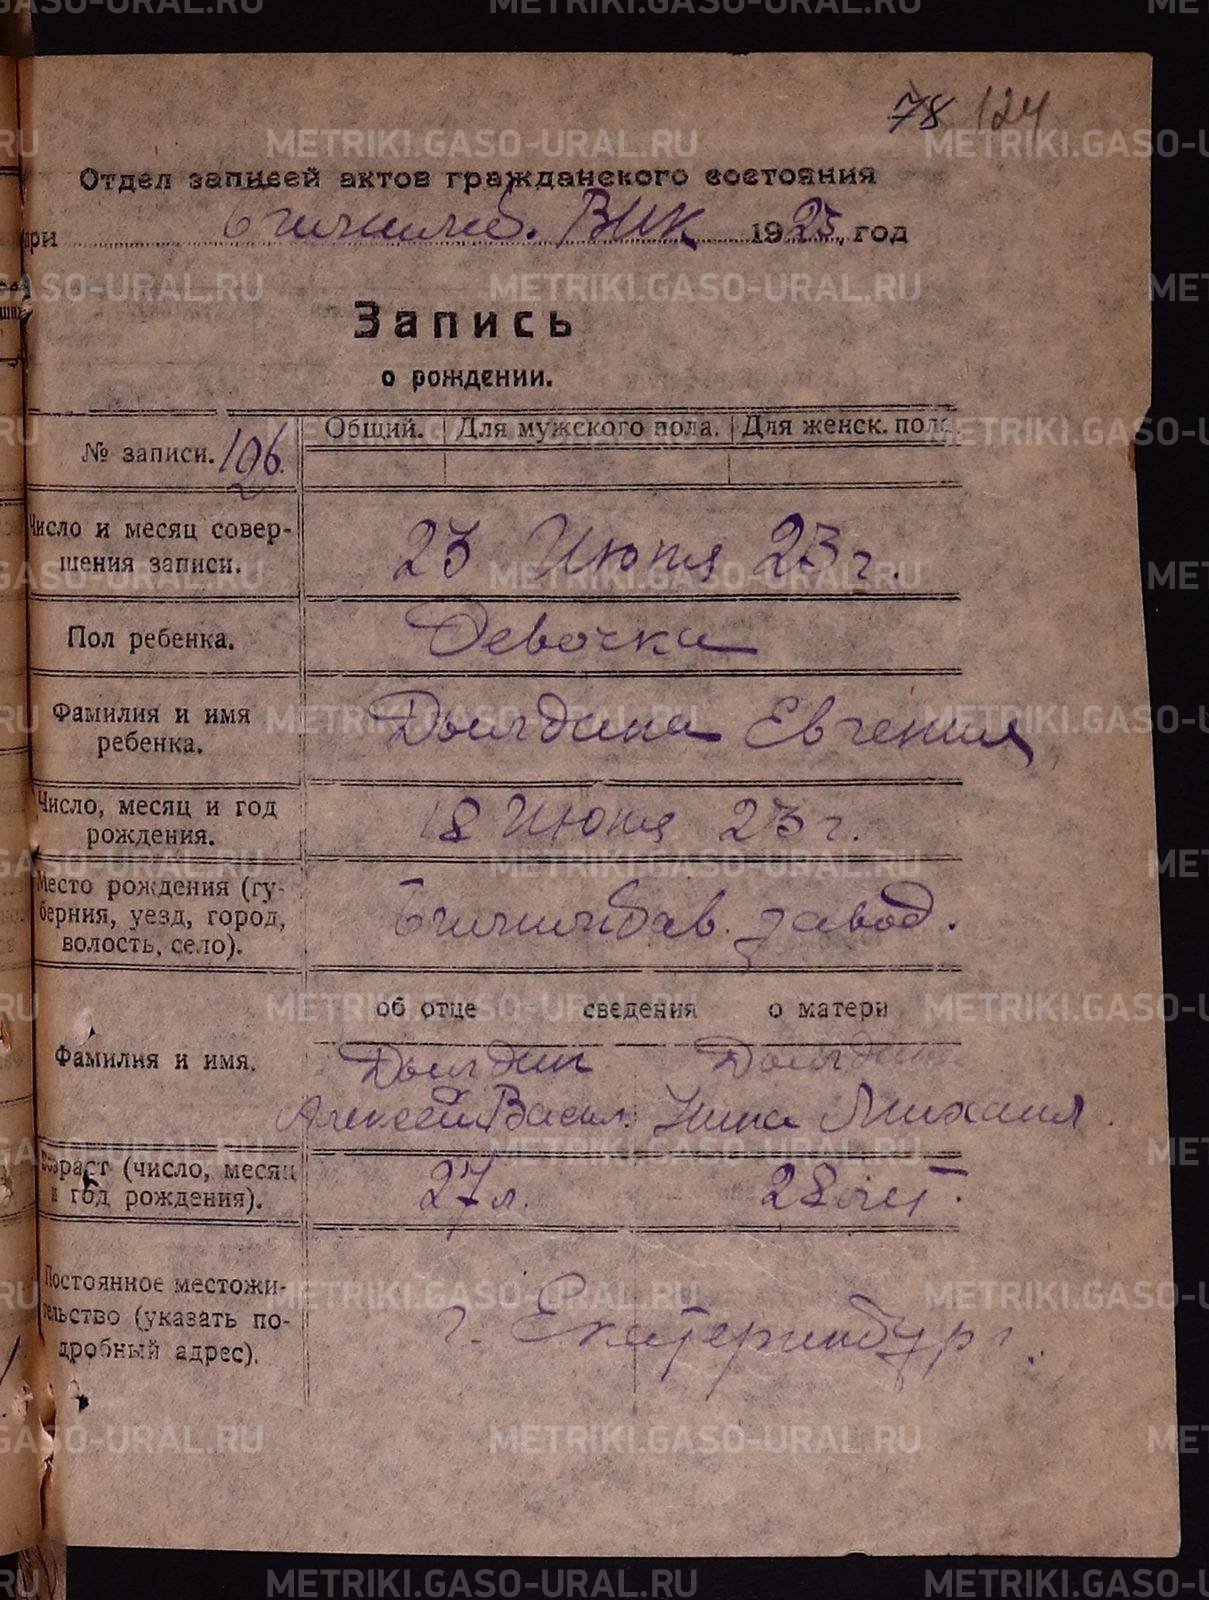 78 124
Отдел записей актов гражданского состояния
при ВИК 1923, год
Запись
о рождении.
№ записи. 196. Общий. Для мужского пола. Для женск. пола.
Число и месяц совер-
шения записи.
23 Июня 23 г.
Пол ребенка. Девочка
Фамилия и имя
ребенка.
Дылдина Евгения
Число, месяц и год
рождения.
18 Июня 23 г.
Место рождения (гу-
берния, уезд, город,
волость, село).
завод.
об отце сведения о матери
Фамилия и имя.
Дылдин Дылдина
Алексей Васил. Нина Михаил.
Возраст (число, месяц
и год рождения).
27 л. 28 лет.
Постоянное местожи-
тельство (указать по-
дробный адрес).
г. Екатеринбург.
METRIKI.GASO-URAL.RU